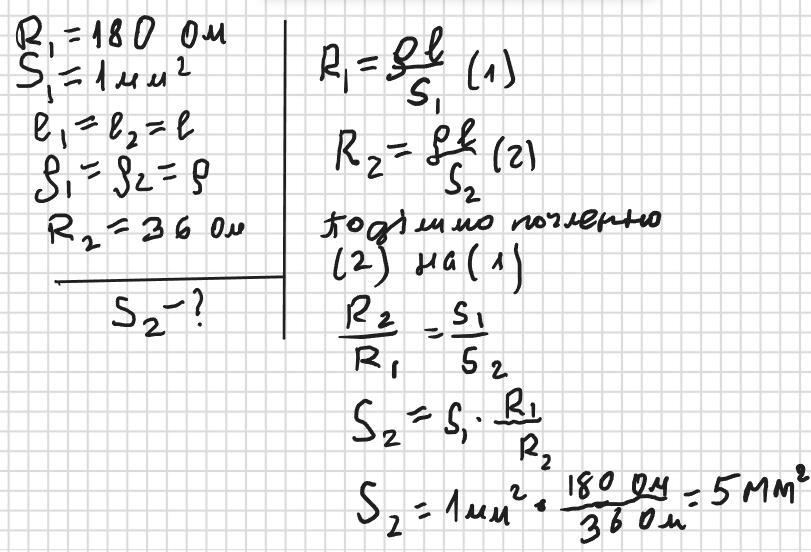 R₁ = 180 Ом
S₁ = 1 мм²
ℓ₁ = ℓ₂ = ℓ
ρ₁ = ρ₂ = ρ
R₂ = 36 Ом
S₂ - ?
R₁ = ρℓ/S₁ (1)
R₂ = ρℓ/S₂ (2)
поділимо почленно
(2) на (1)
R₂/R₁ = S₁/S₂
S₂ = S₁ · R₁/R₂
S₂ = 1 мм² · 180 Ом/36 Ом = 5 мм²